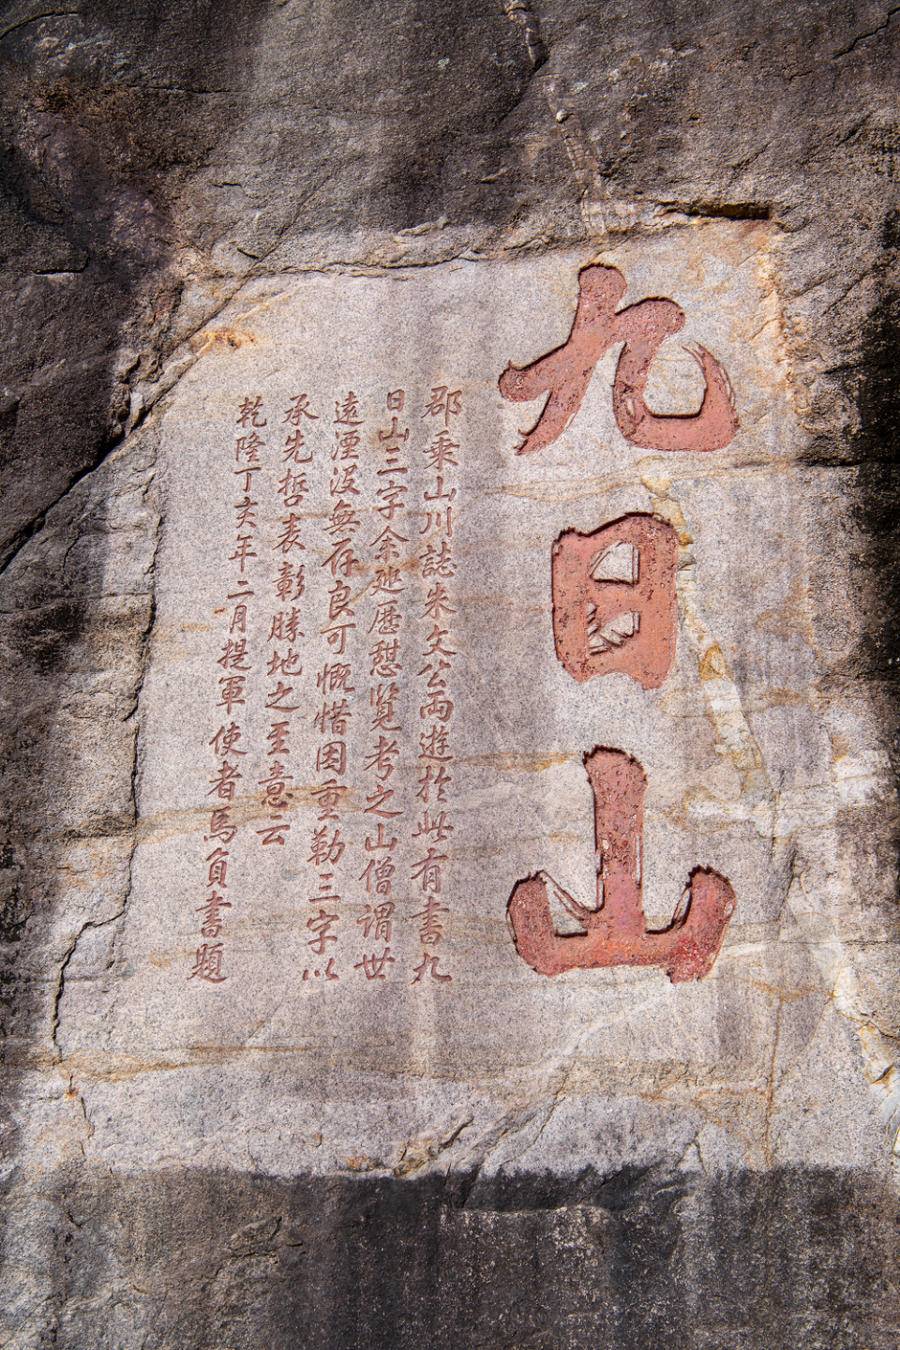 九日山
郡乗山川誌朱文公両遊於此有書九
日山三字余延歷憇覧考之山僧謂世
遠湮没無存良可慨惜因重勒三字以
承先哲表彰勝地之至意云
乾隆丁亥年二月提軍使者馬負書題